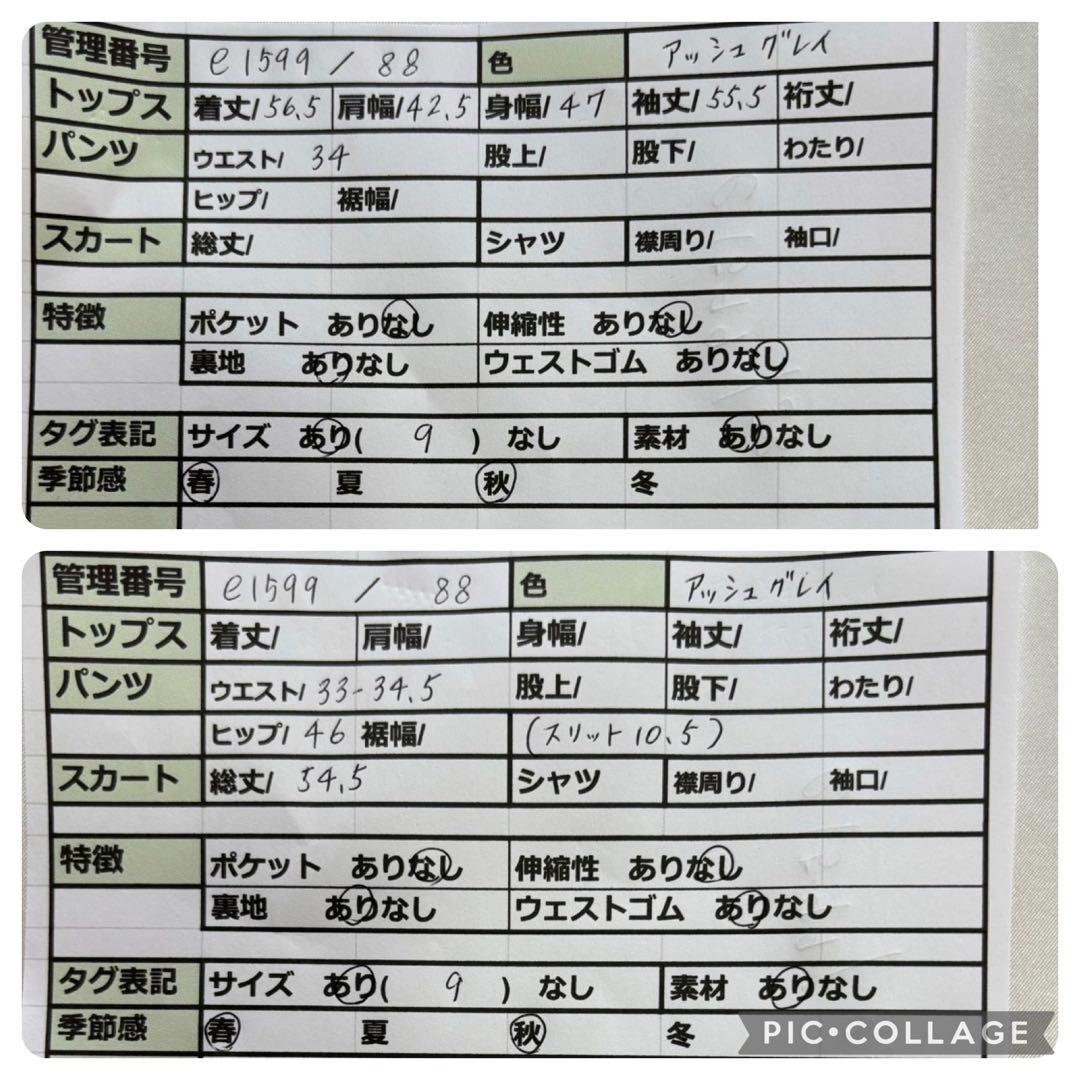 管理番号 e1599 / 88 色 アッシュグレイ
トップス 着丈/56.5 肩幅/42.5 身幅/47 袖丈/55.5 裄丈/
パンツ ウエスト/ 34 股上/ 股下/ わたり/
ヒップ/ 裾幅/
スカート 総丈/ シャツ 襟周り/ 袖口/
特徴 ポケット ありなし 伸縮性 ありなし
裏地 ありなし ウェストゴム ありなし
タグ表記 サイズ あり( 9 ) なし 素材 ありなし
季節感 春 夏 秋 冬
管理番号 e1599 / 88 色 アッシュグレイ
トップス 着丈/ 肩幅/ 身幅/ 袖丈/ 裄丈/
パンツ ウエスト/ 33-34.5 股上/ 股下/ わたり/
ヒップ/ 46 裾幅/ (スリット10.5)
スカート 総丈/ 54.5 シャツ 襟周り/ 袖口/
特徴 ポケット ありなし 伸縮性 ありなし
裏地 ありなし ウェストゴム ありなし
タグ表記 サイズ あり( 9 ) なし 素材 ありなし
季節感 春 夏 秋 冬
PIC•COLLAGE